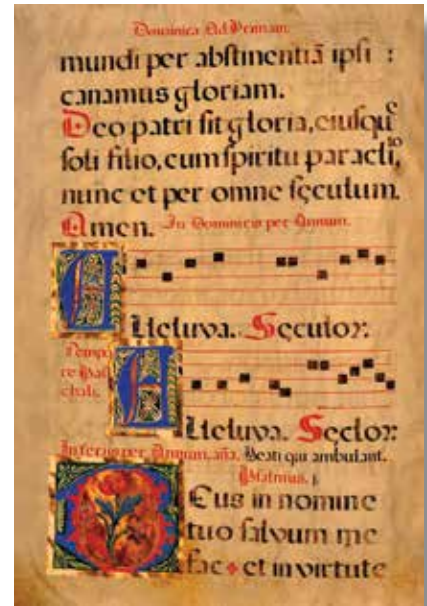 Dominica Ad Primam.
mundi per abstinentiā ipsi :
canamus gloriam.
Deo patri sit gloria, eiusqꝫ
soli filio, cum spiritu paracli,to
nunc et per omne sęculum.
Amen. In Dominicis per Annum.
Alleluya. Sęculor.
Tempo
re Pas
chali.
Alleluya. Sęclor.
In feriis per Annum. aña. Beati qui ambulant.
Psalmus.
DEus in nomine
tuo salvum me
fac + et in virtute